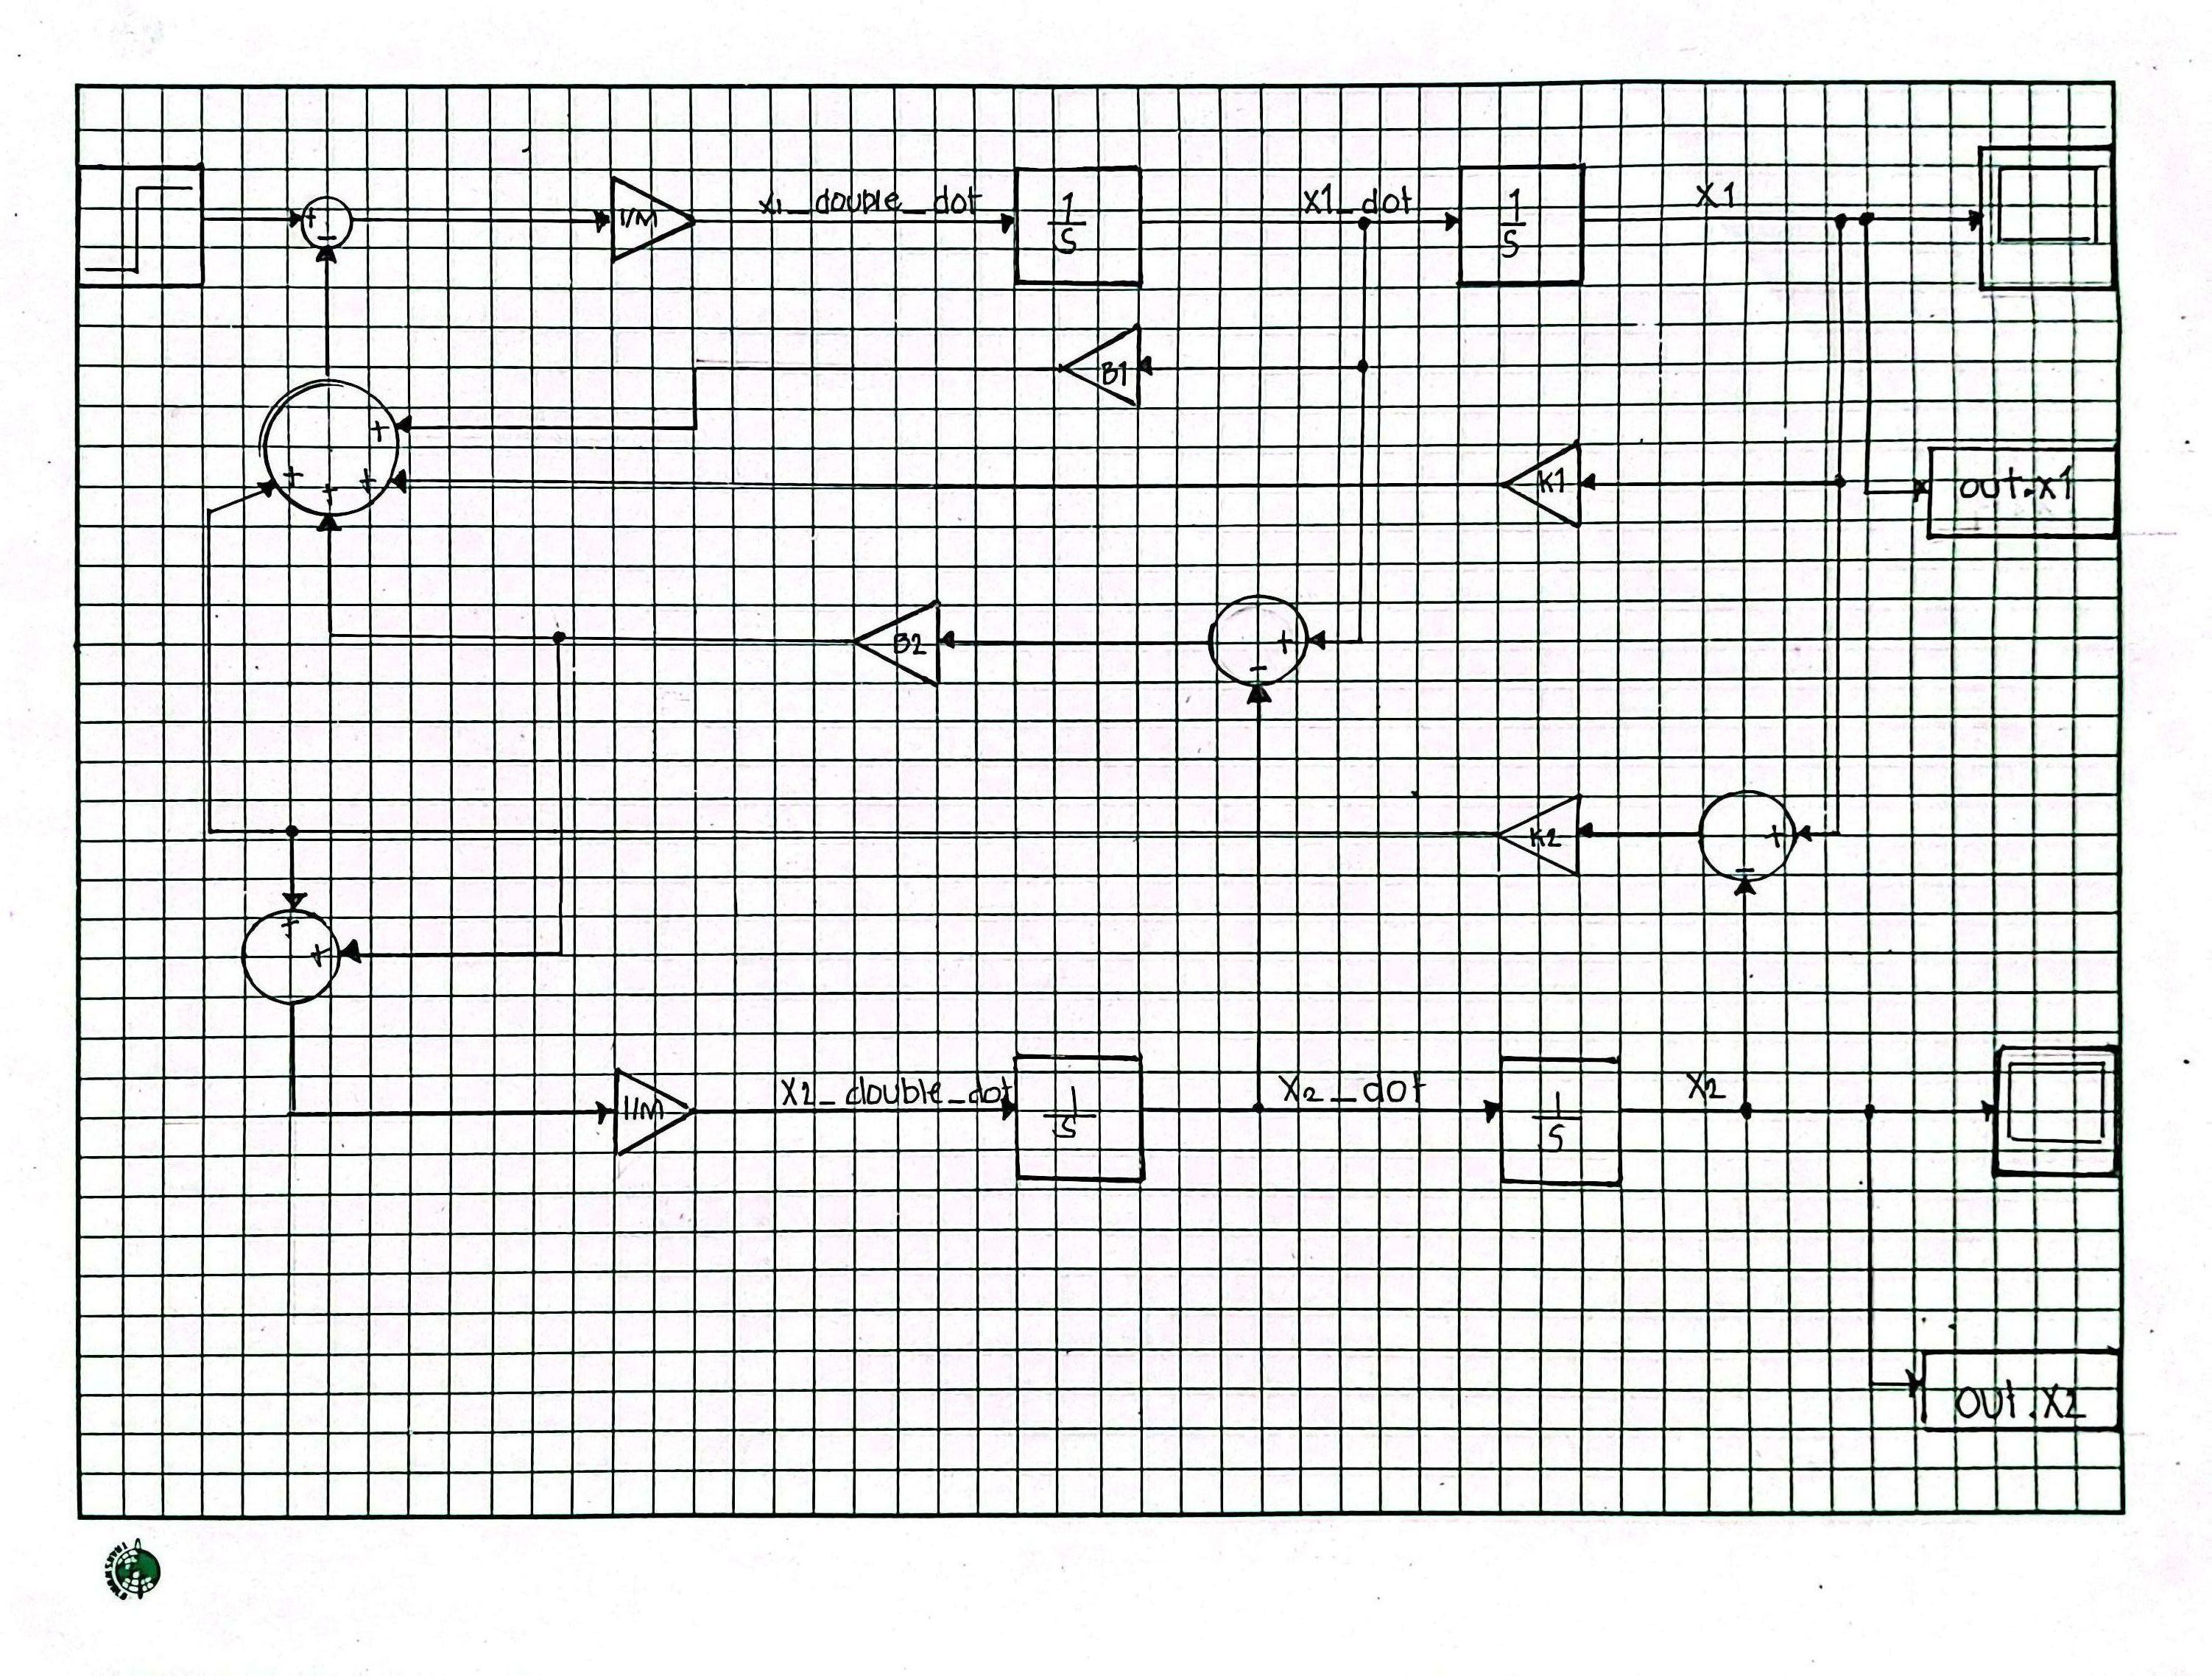 +
−
1/M
x1_double_dot
1
S
x1_dot
1
S
X1
B1
+
+
+
+
K1
out.x1
B2
+
−
K2
+
−
+
+
1/M
X2_double_dot
1
S
X2_dot
1
S
X2
OUt.X2